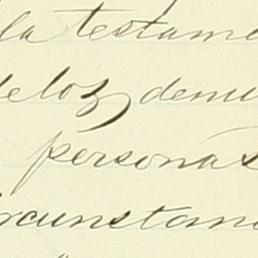 la testame
deloz demu
personas
ircunstanc